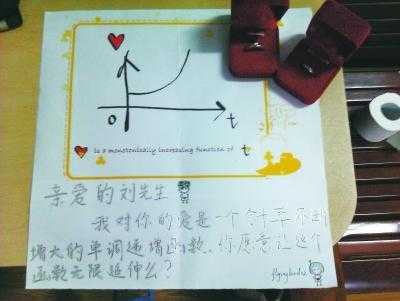 O
t
is a monotonically increasing function of t
亲爱的刘先生
我对你的爱是一个斜率不断
增大的单调递增函数。你愿意让这个
函数无限延伸么？